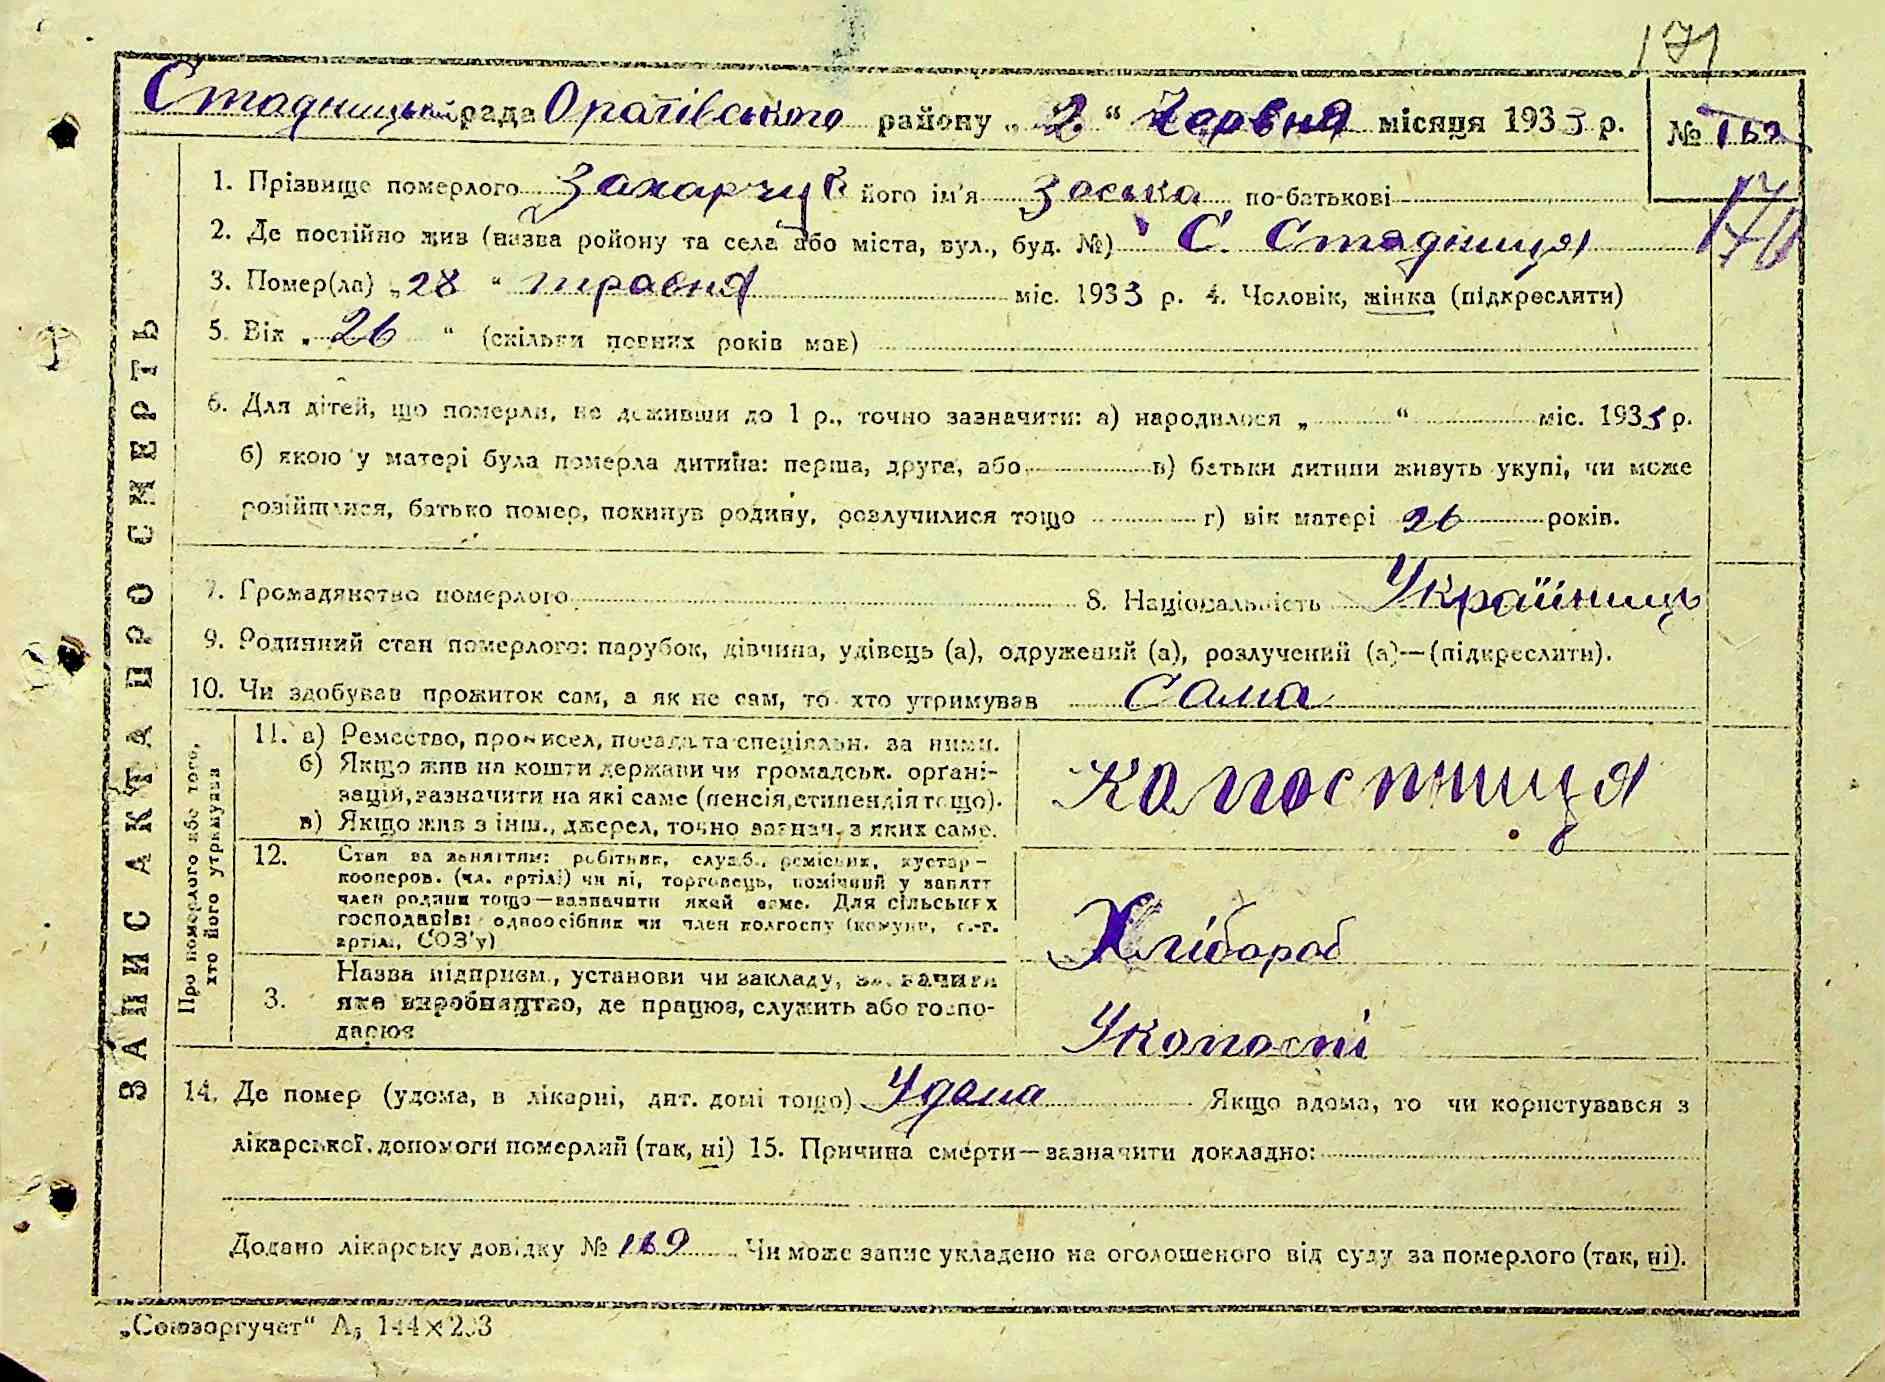 171
Стадницька рада Оратівського району „ 2 “ Червня місяця 1933 р. №
170
1. Прізвище померлого Захарчук його ім'я Зоська по-батькові
2. Де постійно жив (назва ройону та села або міста, вул., буд. №) С. Стадниця
3. Помер(ла) „28 “ травня міс. 1933 р. 4. Чоловік, жінка (підкреслити)
5. Вік „ 26 “ (скільки повних років має)
6. Для дітей, що померли, не доживши до 1 р., точно зазначити: а) народилося „ “ міс. 1933 р.
б) якою у матері була померла дитина: перша, друга, або в) батьки дитини живуть укупі, чи може
розійшлися, батько помер, покинув родину, розлучилися тощо г) вік матері 26 років.
7. Громадянство померлого 8. Національність Україниць
9. Родинний стан померлого: парубок, дівчина, удівець (а), одружений (а), розлучений (а)—(підкреслити).
10. Чи здобував прожиток сам, а як не сам, то хто утримував Сама
ЗАПИС АКТА ПРО СМЕРТЬ
Про померлого або того,
хто його утримував
11. а) Ремество, промисел, посада та спеціяльн. за ними.
б) Якщо жив на кошти держави чи громадськ. орґані-
зацій, зазначити на які саме (пенсія, стипендія тощо).
в) Якщо жив з інш., джерел, точно зазнач. з яких саме.
колгоспниця
12. Стан за заняттям: робітник, служб., ремісник, кустар—
кооперов. (чл. артілі) чи ні, торговець, помічний у занятт
член родини тощо—зазначити який саме. Для сільських
господарів: одноосібник чи член колгоспу (комуни, с.-г.
артілі, СОЗ'у)
Хлібороб
Назва підприєм., установи чи закладу, зазначити
3. яке виробництво, де працює, служить або госпо-
дарює
14. Де помер (удома, в лікарні, дит. домі тощо) Удома Якщо вдома, то чи користувався з
лікарської допомоги померлий (так, ні) 15. Причина смерти—зазначити докладно:
Додано лікарську довідку № 169 Чи може запис укладено на оголошеного від суду за померлого (так, ні).
„Союзоргучет“ А₅ 144×203